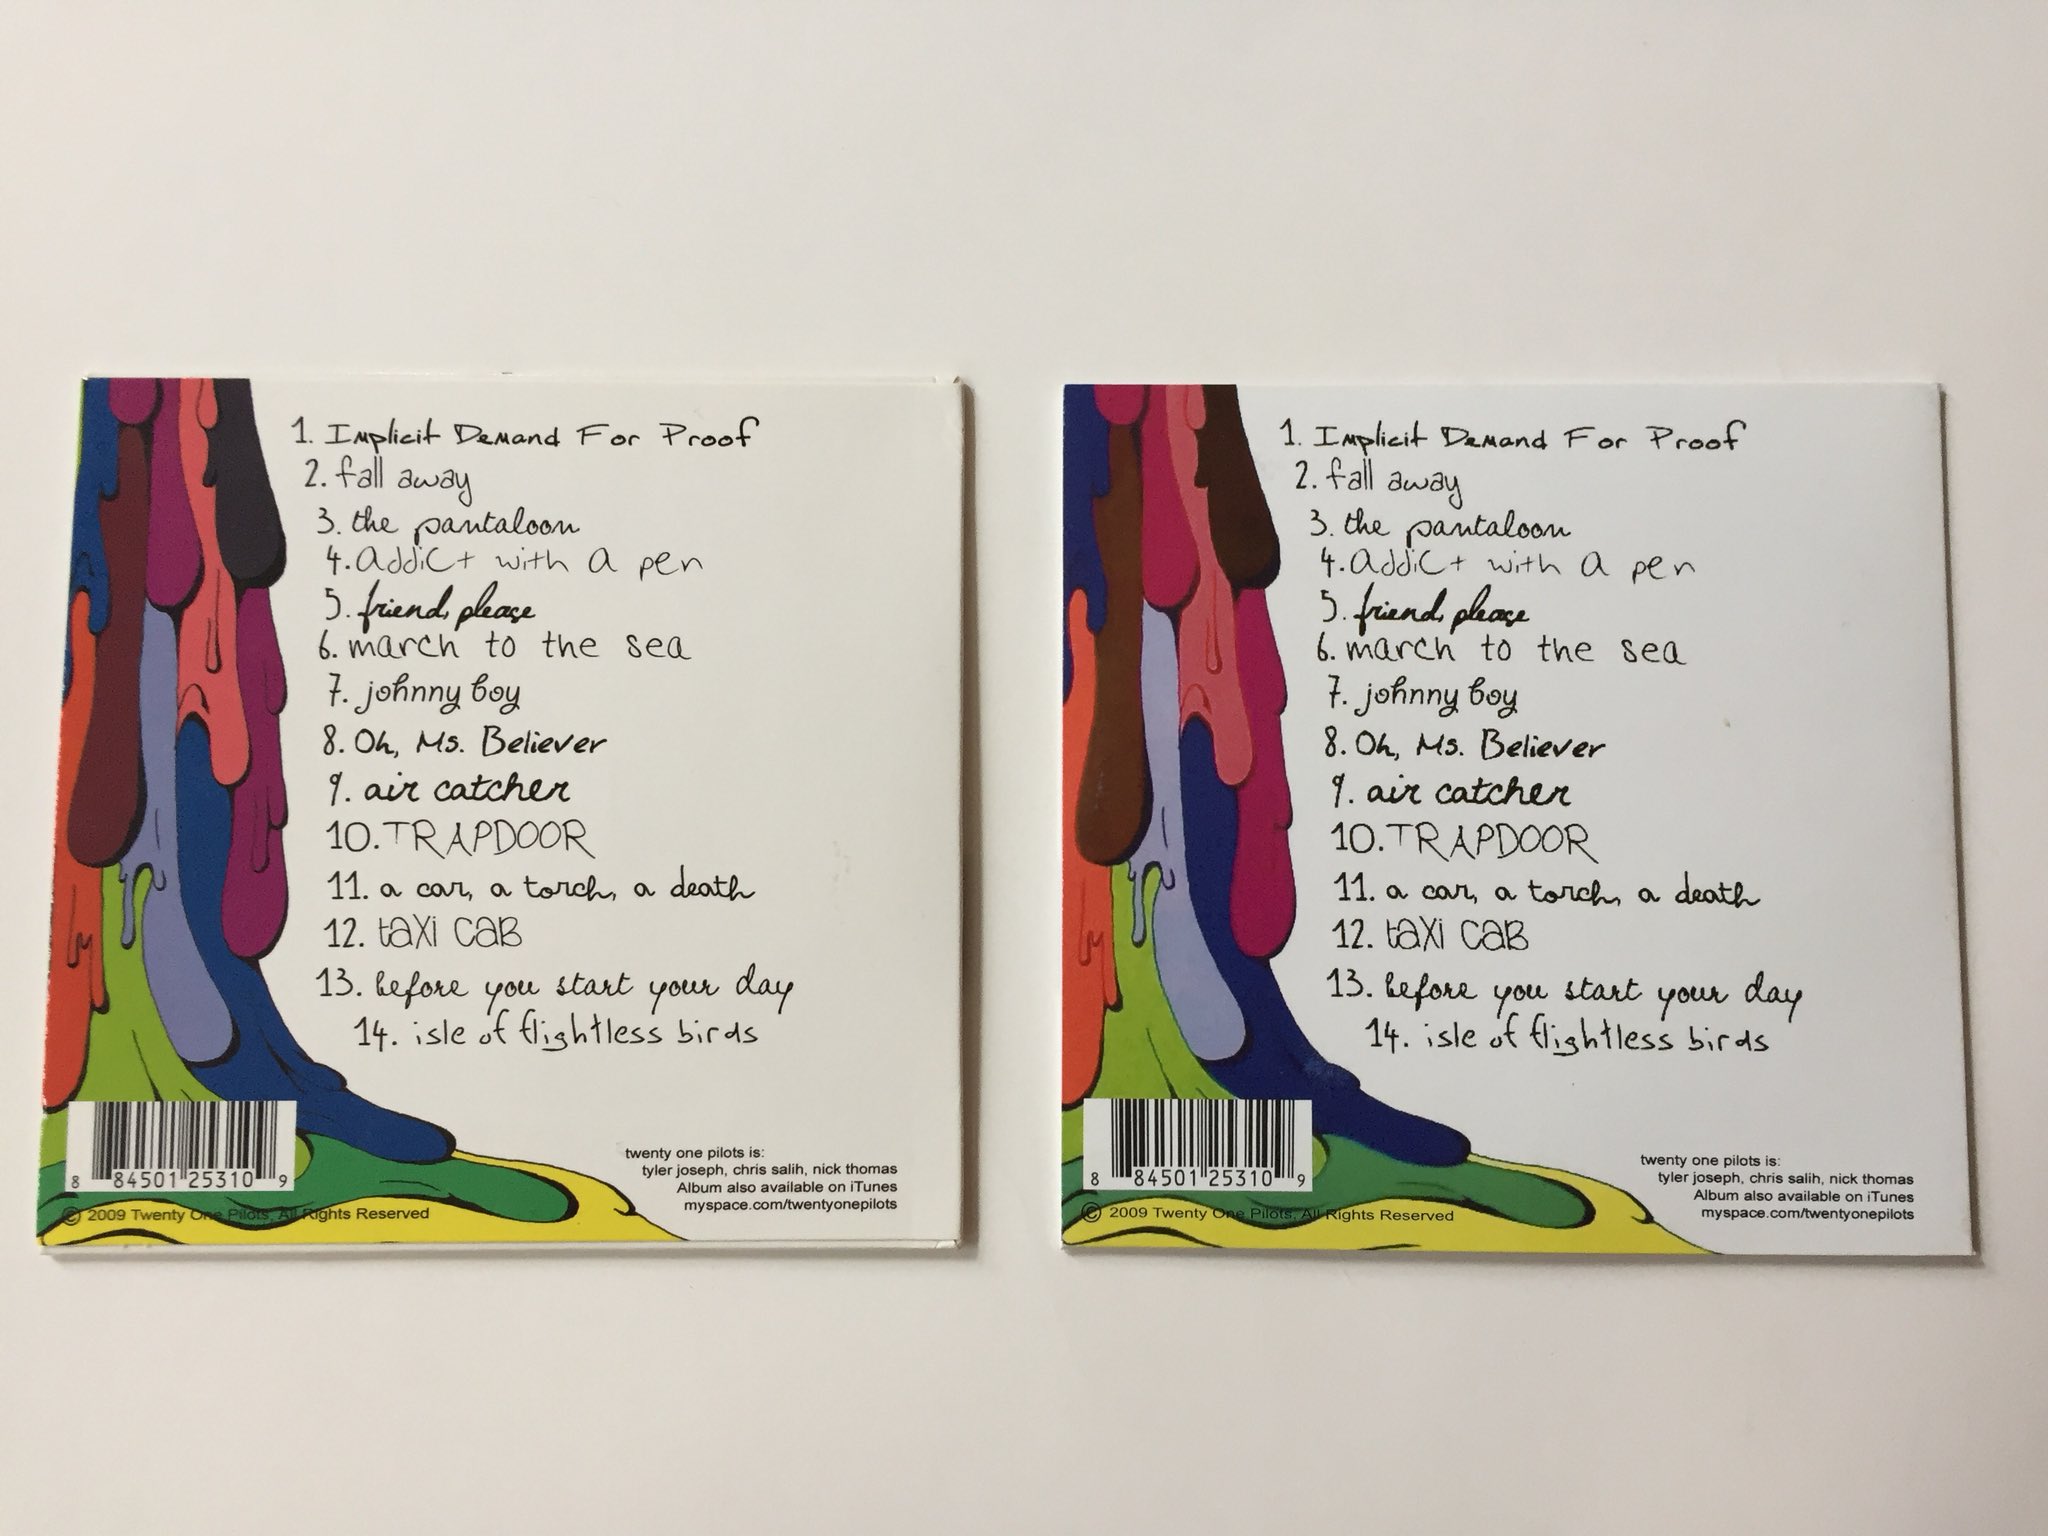 1. Implicit Demand For Proof
2. fall away
3. the pantaloon
4. addict with a pen
5. friend, please
6. march to the sea
7. johnny boy
8. Oh, Ms. Believer
9. air catcher
10. TRAPDOOR
11. a car, a torch, a death
12. taxi cab
13. before you start your day
14. isle of flightless birds
8 84501 25310 9
© 2009 Twenty One Pilots, All Rights Reserved
twenty one pilots is:
tyler joseph, chris salih, nick thomas
Album also available on iTunes
myspace.com/twentyonepilots
1. Implicit Demand For Proof
2. fall away
3. the pantaloon
4. addict with a pen
5. friend, please
6. march to the sea
7. johnny boy
8. Oh, Ms. Believer
9. air catcher
10. TRAPDOOR
11. a car, a torch, a death
12. taxi cab
13. before you start your day
14. isle of flightless birds
8 84501 25310 9
© 2009 Twenty One Pilots, All Rights Reserved
twenty one pilots is:
tyler joseph, chris salih, nick thomas
Album also available on iTunes
myspace.com/twentyonepilots